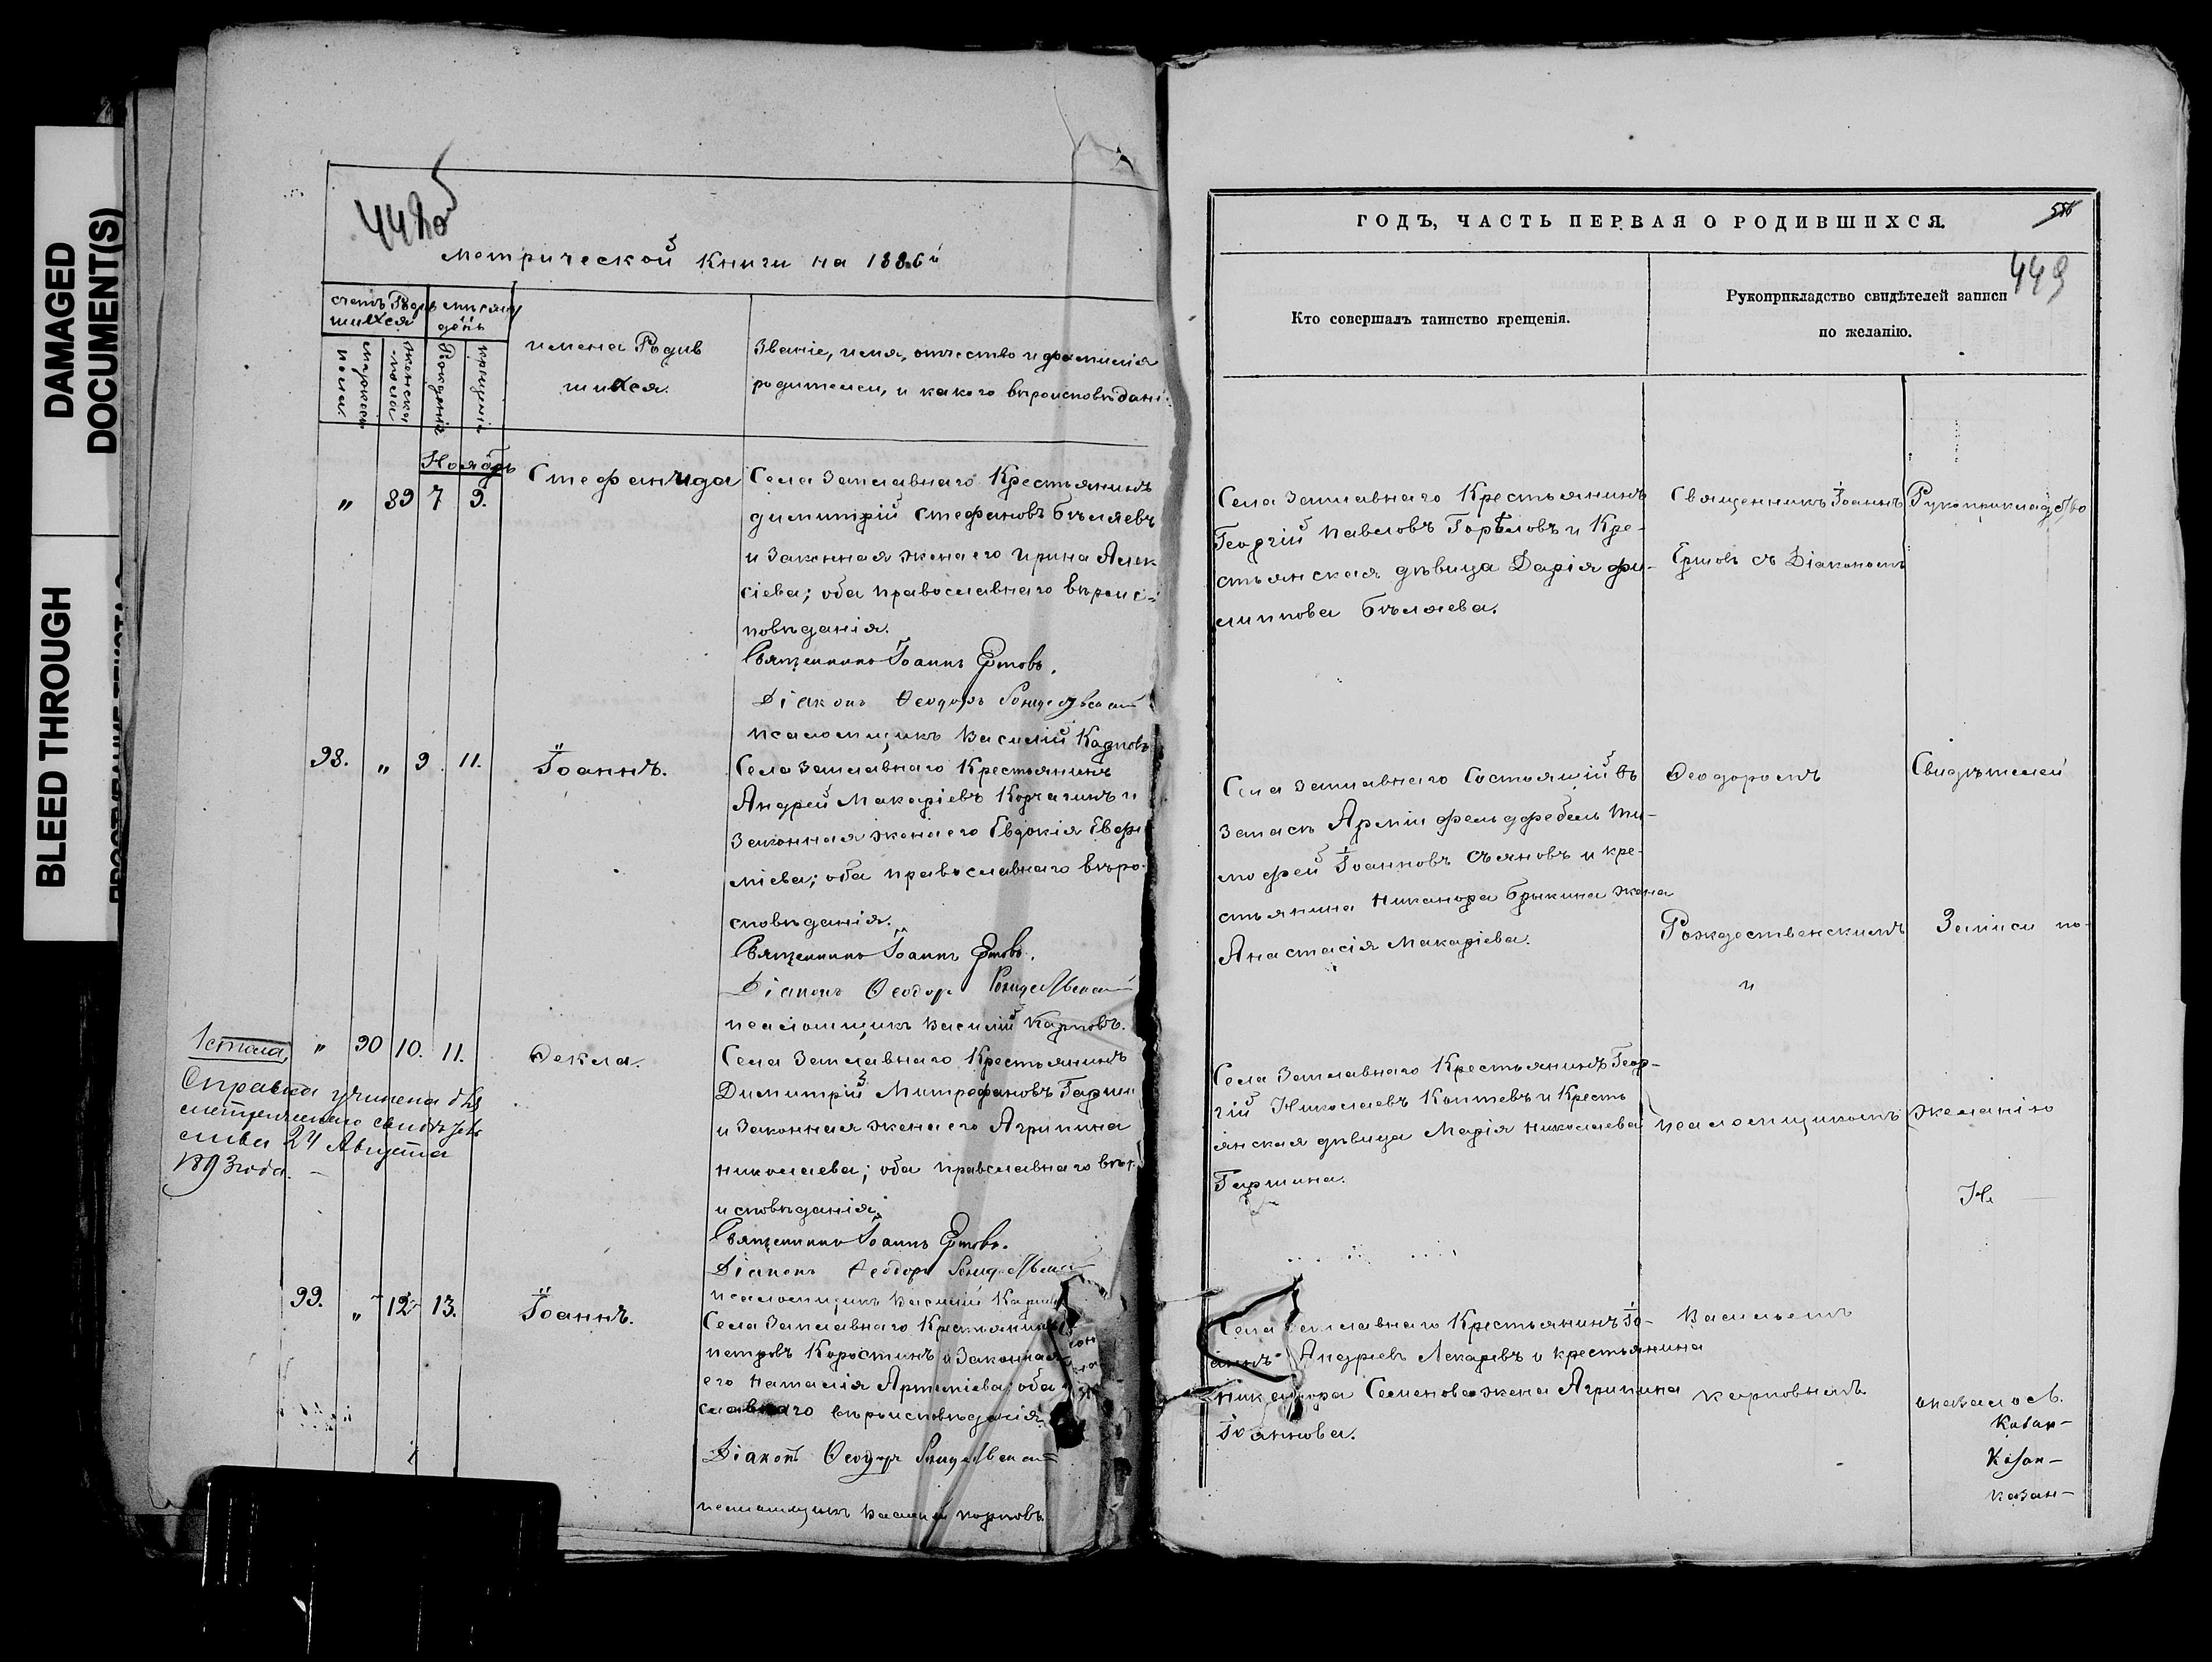 DAMAGED
DOCUMENT(S)
BLEED THROUGH
Метрической книги на 1886й
счетъ Родив мѣсяцъ
шихся день
мужеска пола
женска пола
Рожденія
крещенія
имена Родив
шихся.
Званіе, имя, отчество и фамилія
родителей, и какого вѣроисповѣдані.
Ноябрь
" 89 7 9.
Стефанида
Села Заплавнаго Крестьянинъ
Димитрій Стефановъ Бѣляевъ
и Законная жена его Ирина Алек
сіева; оба православнаго вѣроис-
повѣданія.
Священникъ Іоаннъ Ершовъ.
Діаконъ Ѳеодоръ Рождественскій
псаломщикъ Василій Карповъ
98. " 9. 11.
Іоаннъ.
Села Заплавнаго Крестьянинъ
Андрей Макаріевъ Корчагинъ и
Законная жена его Евдокія Евфи
міева; оба православнаго вѣро-
сповѣданія.
Священникъ Іоаннъ Ершовъ.
Діаконъ Ѳеодоръ Рождественскій
псаломщикъ Василій Карповъ.
" 90 10. 11.
Ѳекла.
Справка учинена для
метрическаго свидѣтель
ства 24 Августа
1893 года.
Села Заплавнаго Крестьянинъ
Димитрій Митрофановъ Гаршин
и Законная жена его Агрипина
Николаева; оба правславнаго вѣр.
исповѣданія.
Священникъ Іоаннъ Ершовъ.
Діаконъ Ѳеодоръ Рождественскій
псаломщикъ Василій Карповъ
99. " 12 13.
Іоаннъ.
Села Заплавнаго Крестьянинъ
Петровъ Коростинъ и Законная
его Наталія Артеміева; оба
славнаго вѣроисповѣданія
Діаконъ Ѳеодоръ Рождественскій
псаломщикъ Василій Карповъ.
ГОДЪ, ЧАСТЬ ПЕРВАЯ О РОДИВШИХСЯ.
449
Кто совершалъ таинство крещенія.
Рукоприкладство свидѣтелей записи
по желанію.
Села Заплавнаго Крестьянинъ
Георгій Павловъ Горѣловъ и Кре-
стьянская дѣвица Дарія Фи-
липпова Бѣляева.
Священникъ Іоаннъ
Ершовъ съ Діакономъ
Рукоприкладство
Села Заплавнаго Состоящій въ
Запасѣ Арміи фельдфебель Ти-
мофей Іоанновъ Съяновъ и кре-
стьянина Никанора Брыкина жена
Анастасія Макаріева.
Ѳеодоромъ
Рождественскимъ
и
Свидѣтелей
Записи по-
Села Заплавнаго Крестьянинъ Геор-
гій Николаевъ Коптевъ и Кресть
янская дѣвица Марія Николаева
Гаршина.
псаломщикомъ
желанію
Не
Села Заплавнаго Крестьянинъ Іо-
аннъ Андреевъ Лекаревъ и крестьянина
Никанора Семенова жена Агрипина
Іоаннова.
Васильемъ
Карповымъ
оказалось.
Казан-
Казан-
казан-